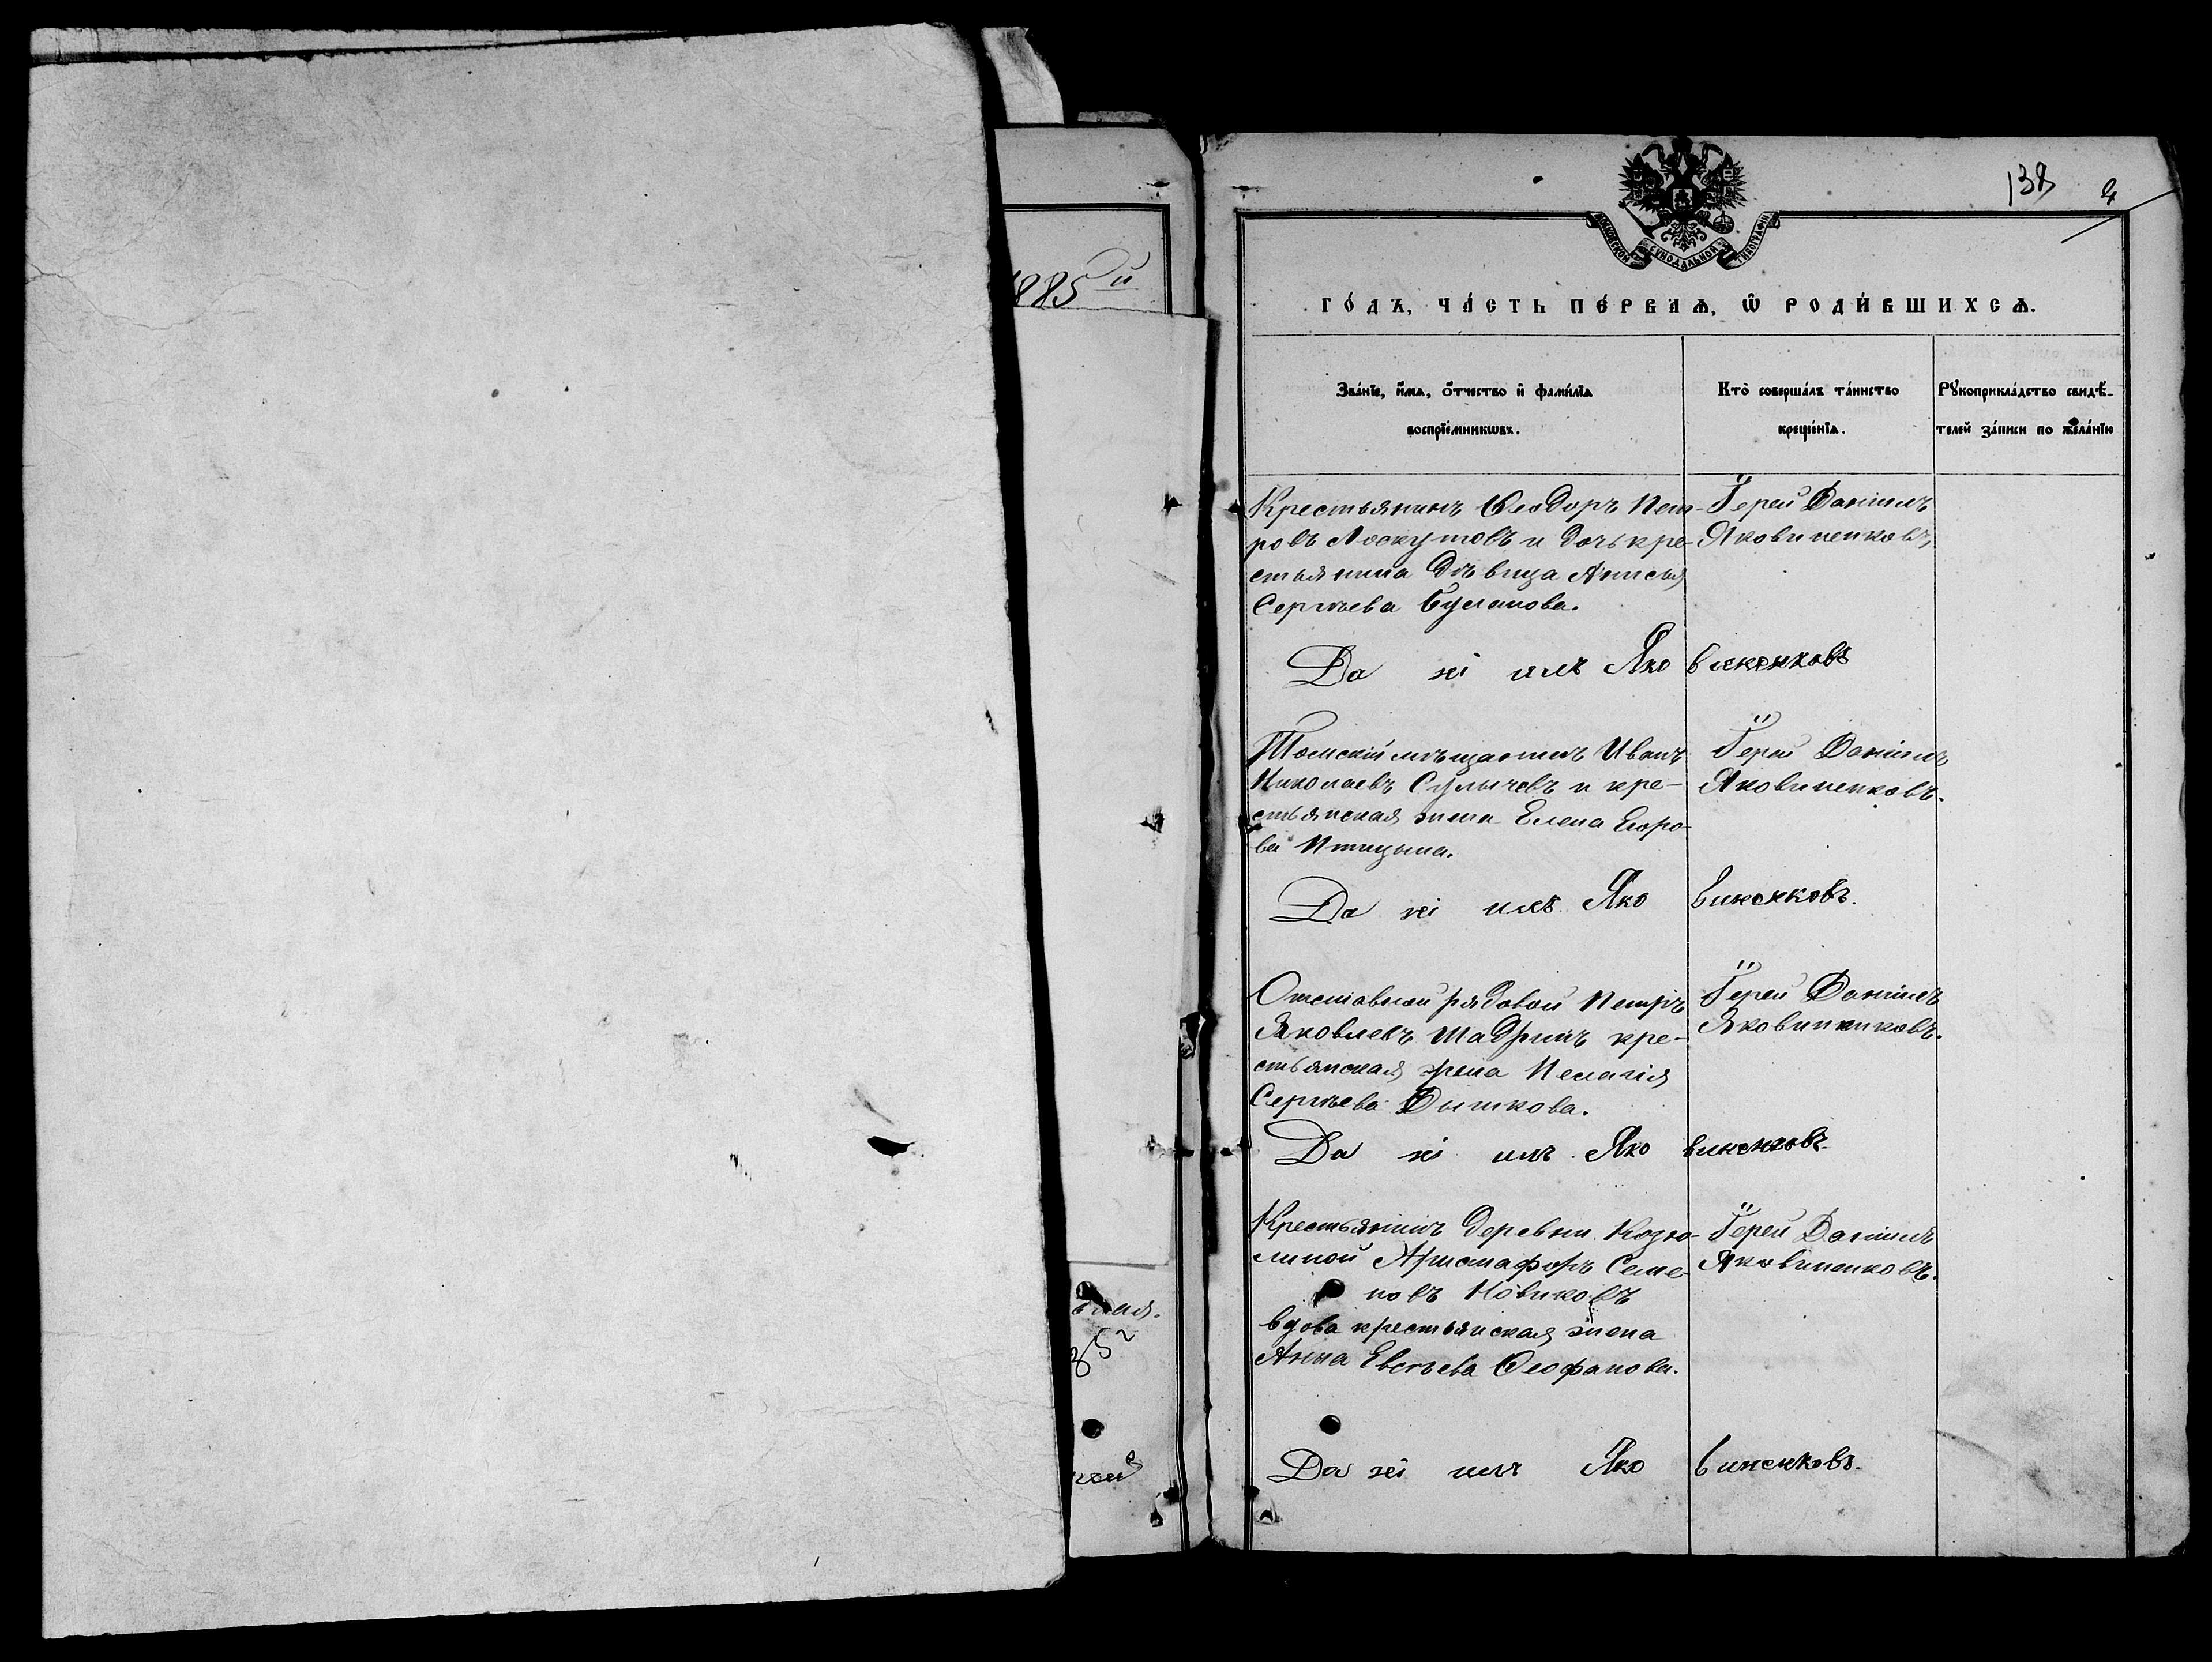 1885й
вная.
138 4
МОСКОВСКОЙ СѴНОДАЛЬНОЙ ТИПОГРАФІИ
ГО́ДЪ, ЧА́СТЬ ПЕ́РВАѦ, Ѿ РОДИ́ВШИХСѦ.
Зва́нїе, и҆́мѧ, ѻ҆́тчество и҆ фами́лїѧ
воспрїе́мникѡвъ.
Кто̀ соверша́лъ та́инство
креще́нїѧ.
Рꙋкоприкла́дство свидѣ́-
телей за́писи по жела́нїю
Крестьянинъ Ѳеодоръ Пет-
ровъ Лоскутовъ и дочь кре-
стьянина дѣвица Анисья
Сергѣева Буланова.
Іерей Даніилъ
Яковиненковъ,
Да ні илъ Яко виненковъ
Томскій мѣщанинъ Иванъ
Николаевъ Сулычевъ и кре-
стьянская жена Елена Егоро-
ва Птицына.
Іерей Даніилъ
Яковиненковъ.
Да ні илъ Яко виненковъ.
Отставной рядовой Петръ
Яковлевъ Шадринъ кре-
стьянская жена Пелагія
Сергѣева Дышкова.
Іерей Даніилъ
Яковиненковъ.
Да ні илъ Яко виненковъ
Крестьянинъ деревни Козю-
линой Аристафоръ Семе-
новъ Новиковъ
вдова крестьянская жена
Анна Евсѣева Ѳеофанова.
Іерей Даніилъ
Яковиненковъ.
Да ні илъ Яко виненковъ.